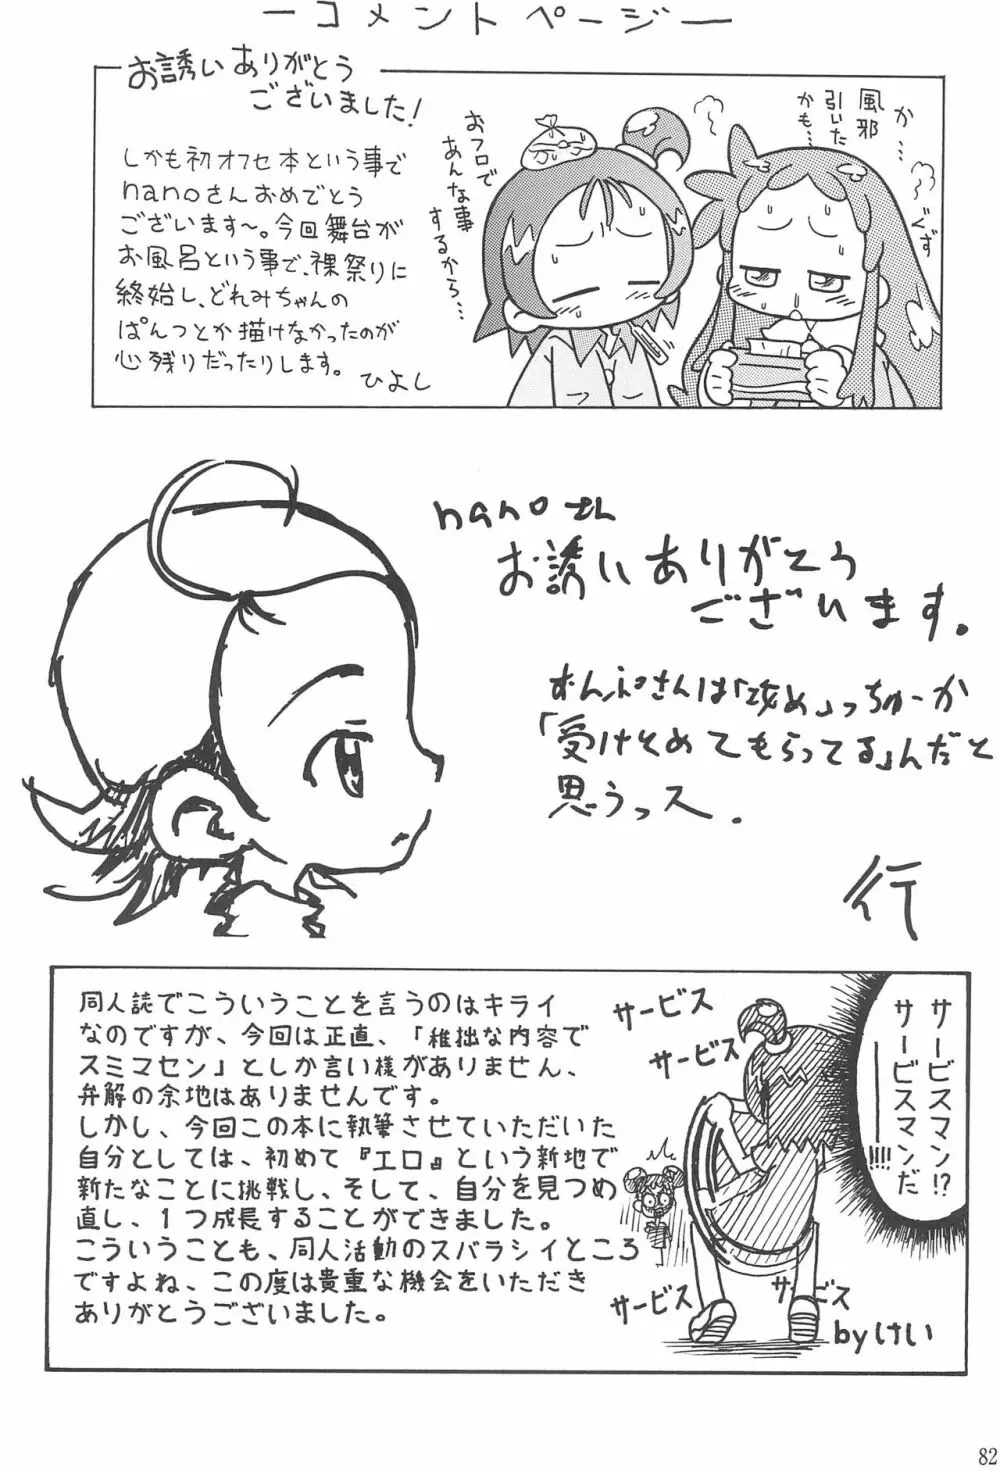 ーコメントページー
お誘いありがとう
ございました!
しかも初オフセ本という事で
nanoさんおめでとう
ございます～。今回舞台が
お風呂という事で、裸祭りに
終始し、どれみちゃんの
ぱんつとか描けなかったのが
心残りだったりします。
ひよし
か…
風邪
引いた
かも…
ぐず
おフロで
あんな事
するから…
nanoさん
お誘いありがとう
ございます。
おんぷさんは「攻め」っちゅーか
「受けとめてもらってる」んだと
思うっス.
行
同人誌でこういうことを言うのはキライ
なのですが、今回は正直、「稚拙な内容で
スミマセン」としか言い様がありません、
弁解の余地はありませんです。
しかし、今回この本に執筆させていただいた
自分としては、初めて『エロ』という新地で
新たなことに挑戦し、そして、自分を見つめ
直し、1つ成長することができました。
こういうことも、同人活動のスバラシイところ
ですよね、この度は貴重な機会をいただき
ありがとうございました。
サービスマン!?
サービスマンだ
ーーー!!!!
サービス
サービス
サービス
サービス
byけい
82